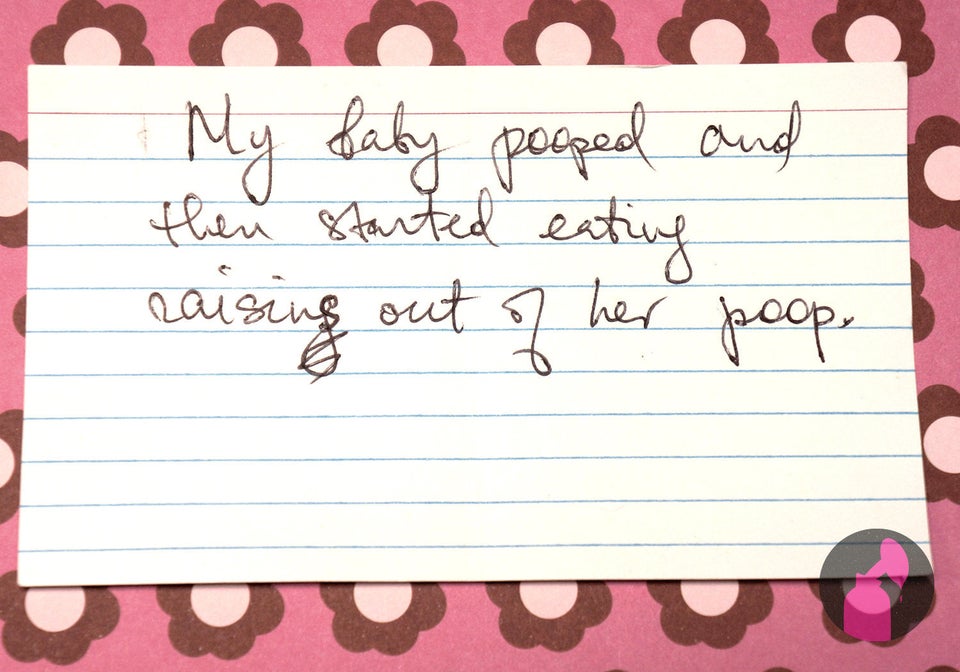 My baby pooped and
then started eating
raisins out of her poop.